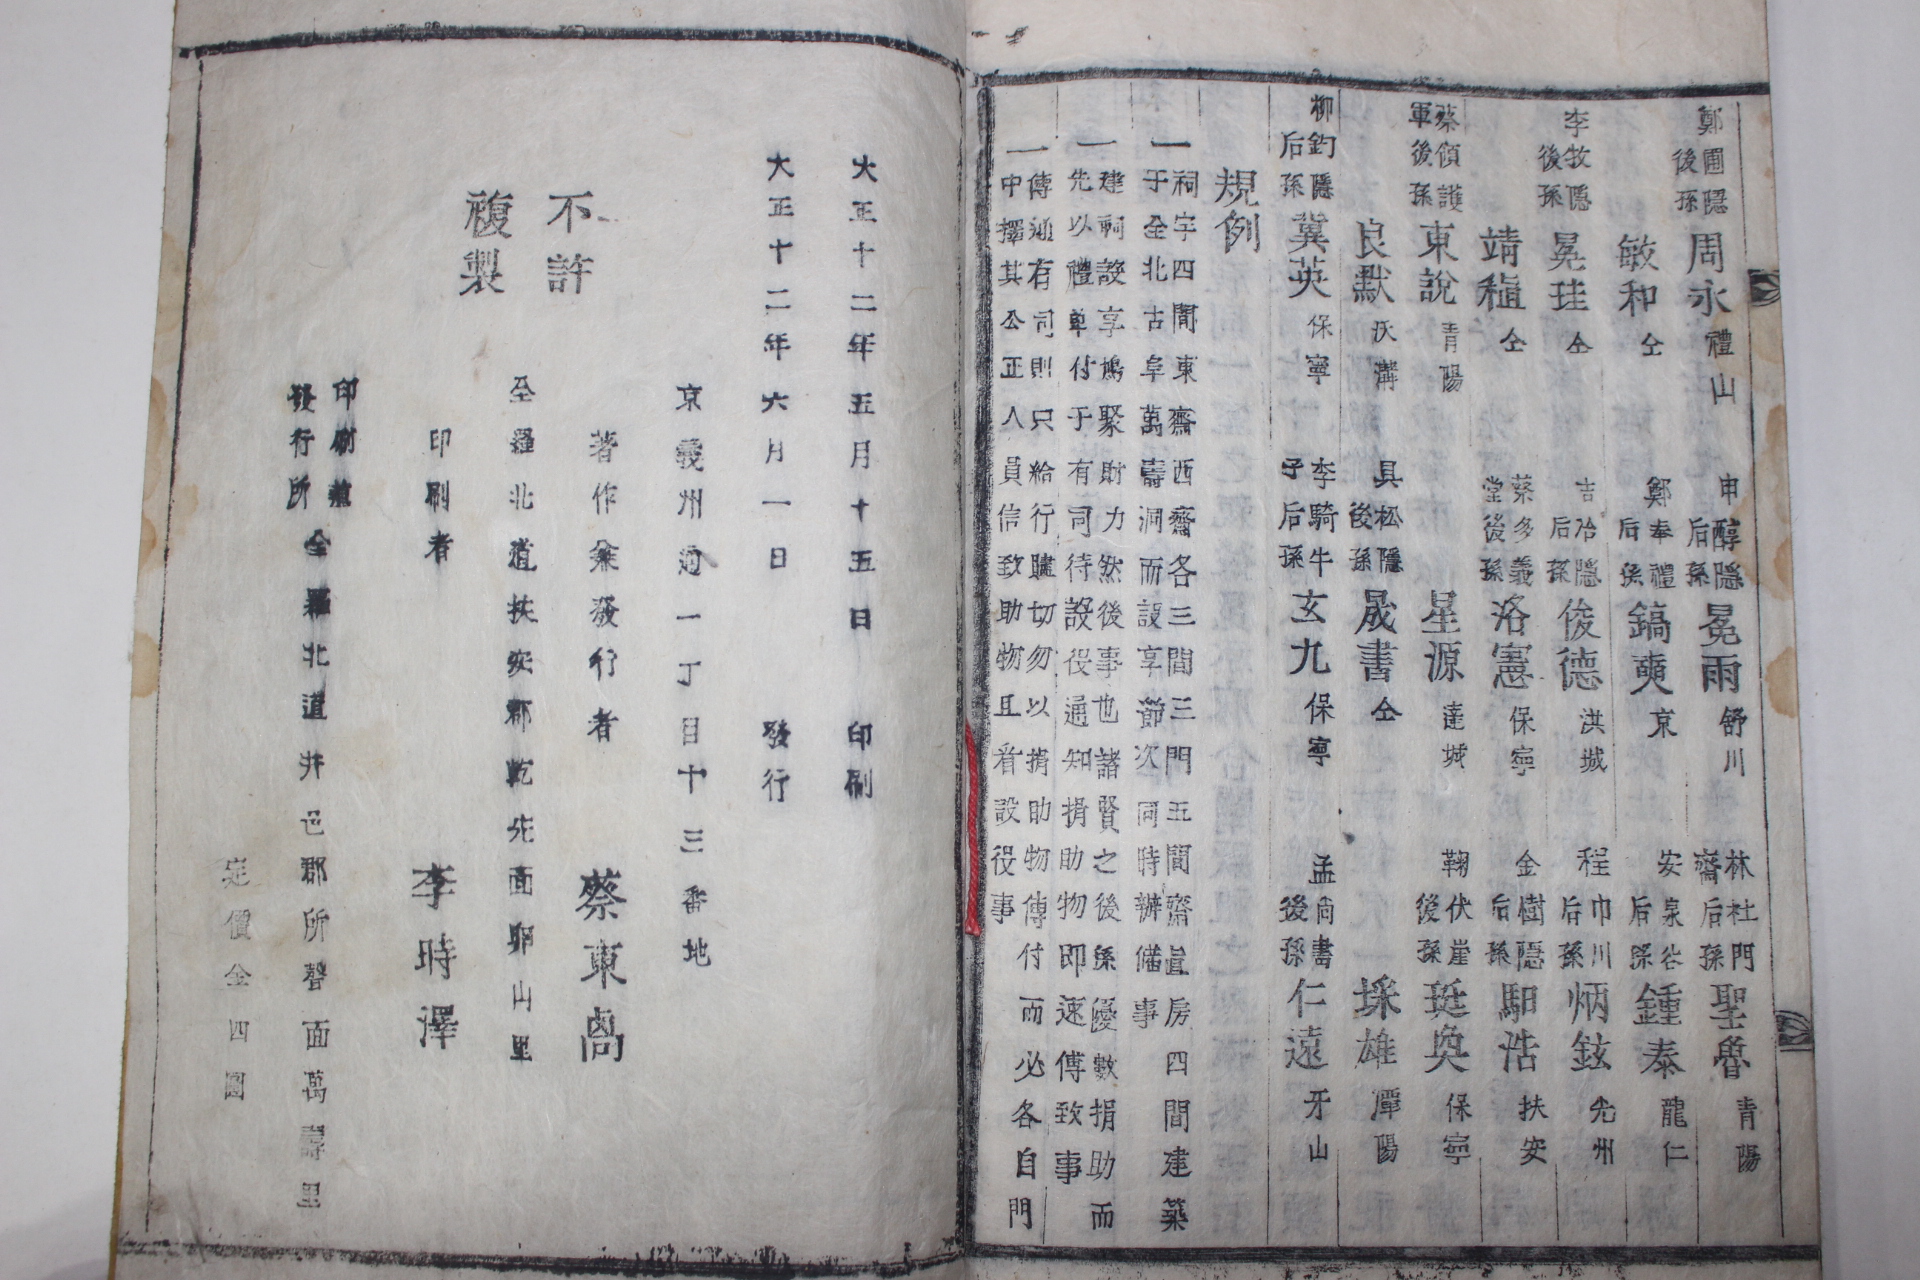 鄭圃隱後孫 周永 禮山 申醇隱后孫 冕雨 舒川 林杜門齋后孫 聖魯 青陽
敏和 仝 鄭奉禮后孫 鎬奭 京 安泉谷后孫 鍾泰 龍仁
李牧隱後孫 冕珪 仝 吉冶隱后孫 俊德 洪城 程巾川后孫 炳鉉 光州
靖稙 仝 蔡多義堂後孫 洛憲 保寧 金樹隱后孫 馹浩 扶安
蔡傾護軍後孫 東說 青陽 星源 達城 鞠伏崖後孫 珽奐 保寧
良默 沃溝 具松隱後孫 晟書 仝 埰雄 潭陽
柳釣隱后孫 冀英 保寧 李騎牛子后孫 玄九 保寧 孟尙書後孫 仁遠 牙山
規例
一祠宇四間東齋西齋各三間三門五間齋直房四間建築
于全北古阜萬壽洞而設享節次同時辦備事
一建祠設享鳩聚財力然後事也諸賢之後孫優數捐助而
先以禮單付于有司待設役通知捐助物即速傳致事
一傳通有司則只給行贐切勿以捐助物傳付而必各自門
中擇其公正人員信致助物且看設役事
大正十二年五月十五日 印刷
大正十二年六月一日 發行
京義州通一丁目十三番地
不許
複製
著作兼發行者 蔡東卨
全羅北道扶安郡乾先面卵山里
印刷者 李時澤
印刷兼
發行所 全羅北道井邑郡所聲面萬壽里
定價金四圓